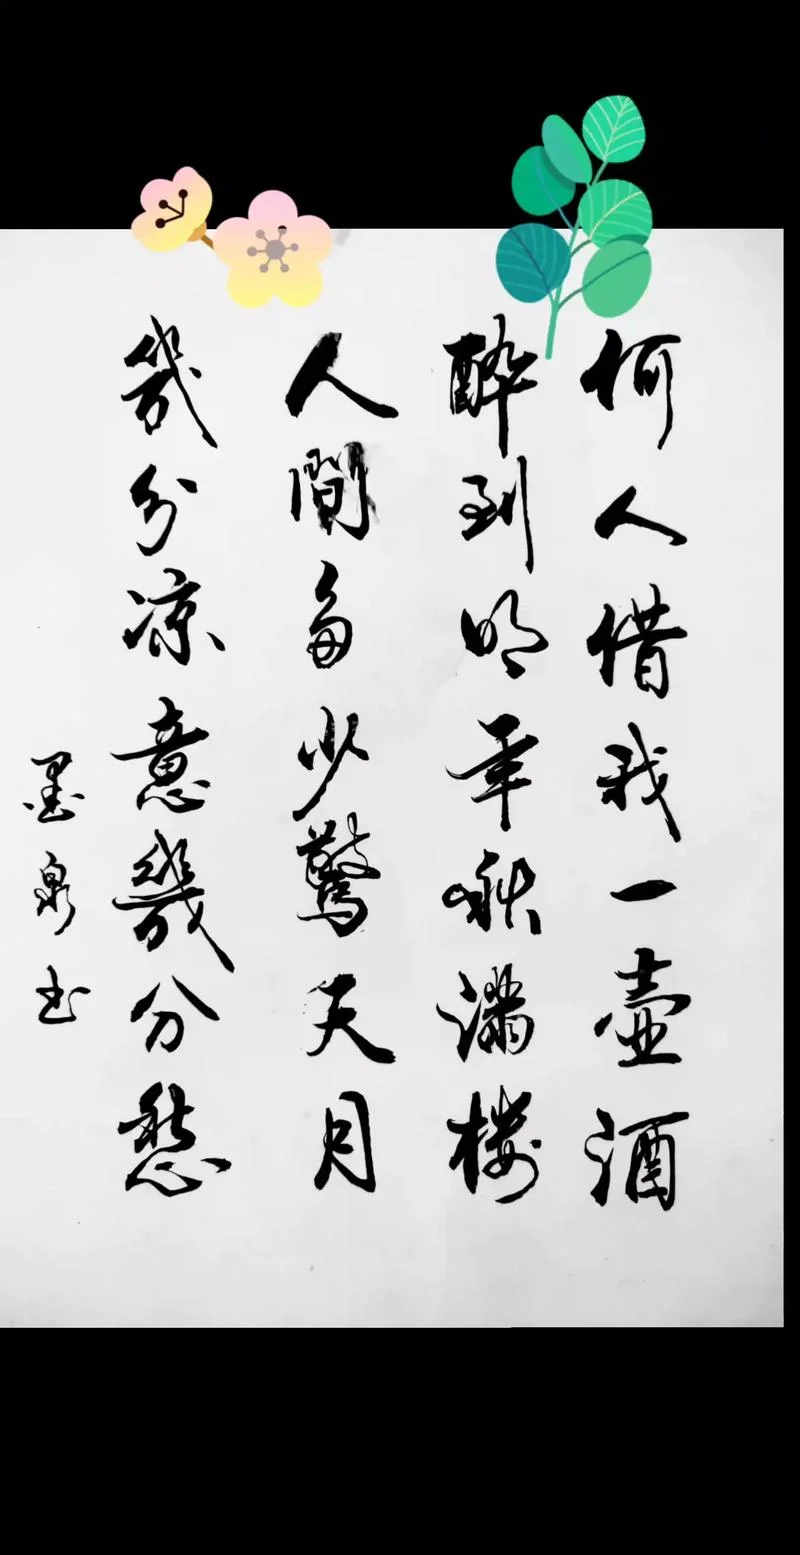 何人借我一壶酒
醉到明年秋满楼
人間多少驚天月
幾分凉意幾分愁
墨泉书